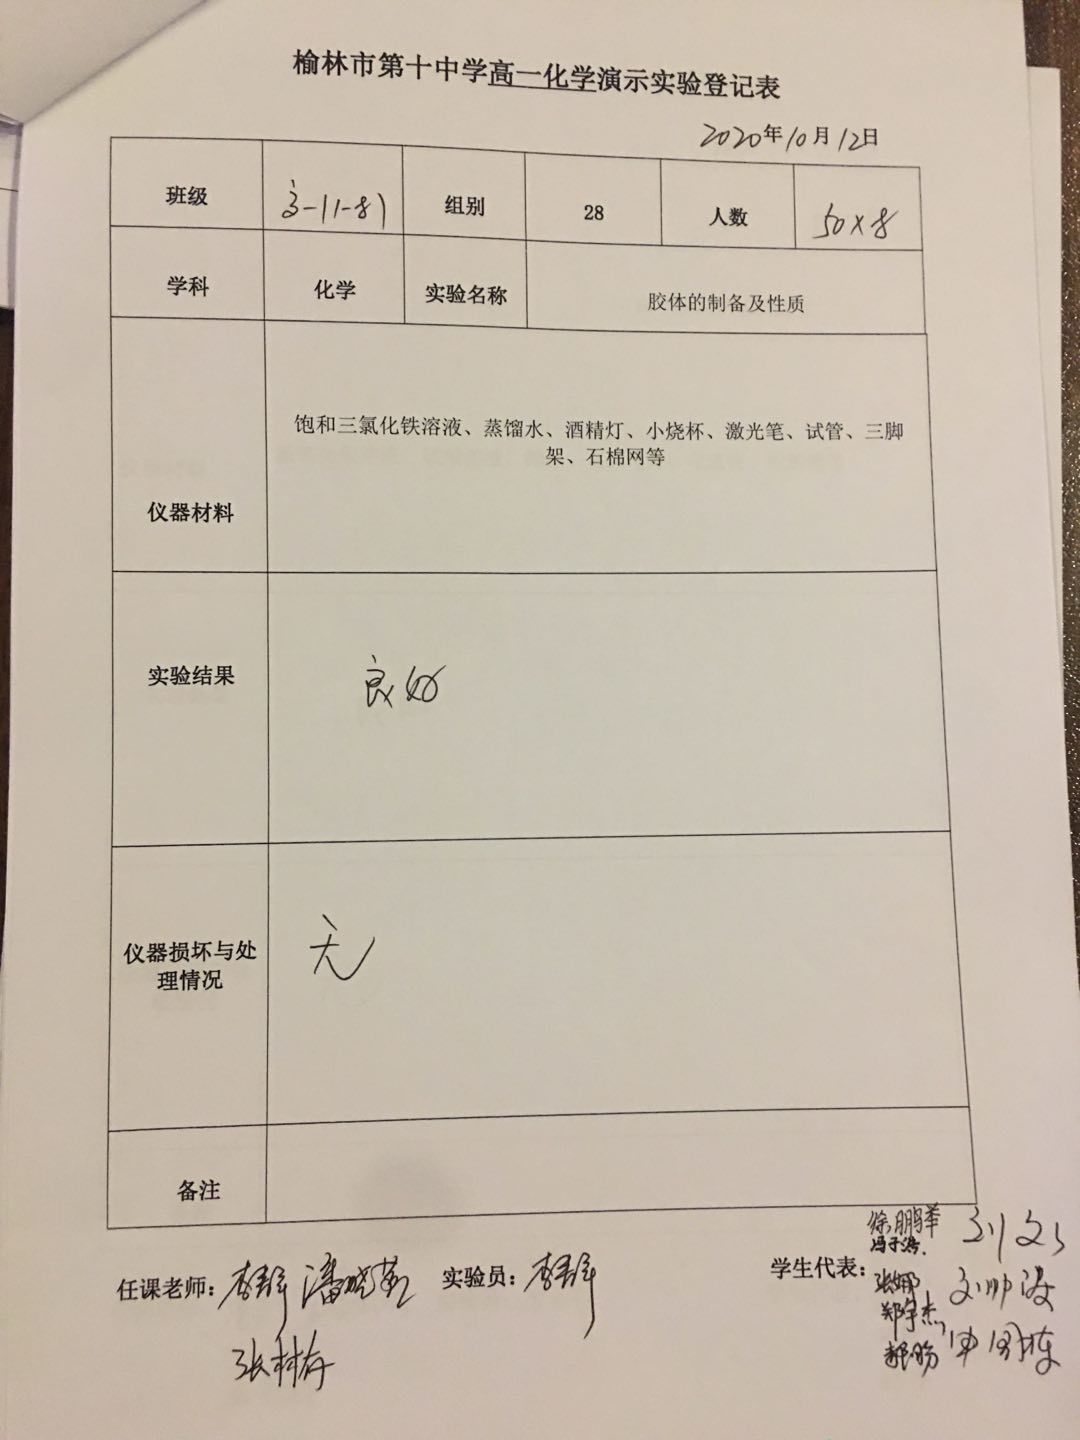 榆林市第十中学高一化学演示实验登记表
2020年10月12日
班级 高一(1-8) 组别 28 人数 50×8
学科 化学 实验名称 胶体的制备及性质
仪器材料
饱和三氯化铁溶液、蒸馏水、酒精灯、小烧杯、激光笔、试管、三脚
架、石棉网等
实验结果 良好
仪器损坏与处
理情况
无
备注
徐鹏华
任课老师： 实验员： 学生代表：
张娜
郑宇杰